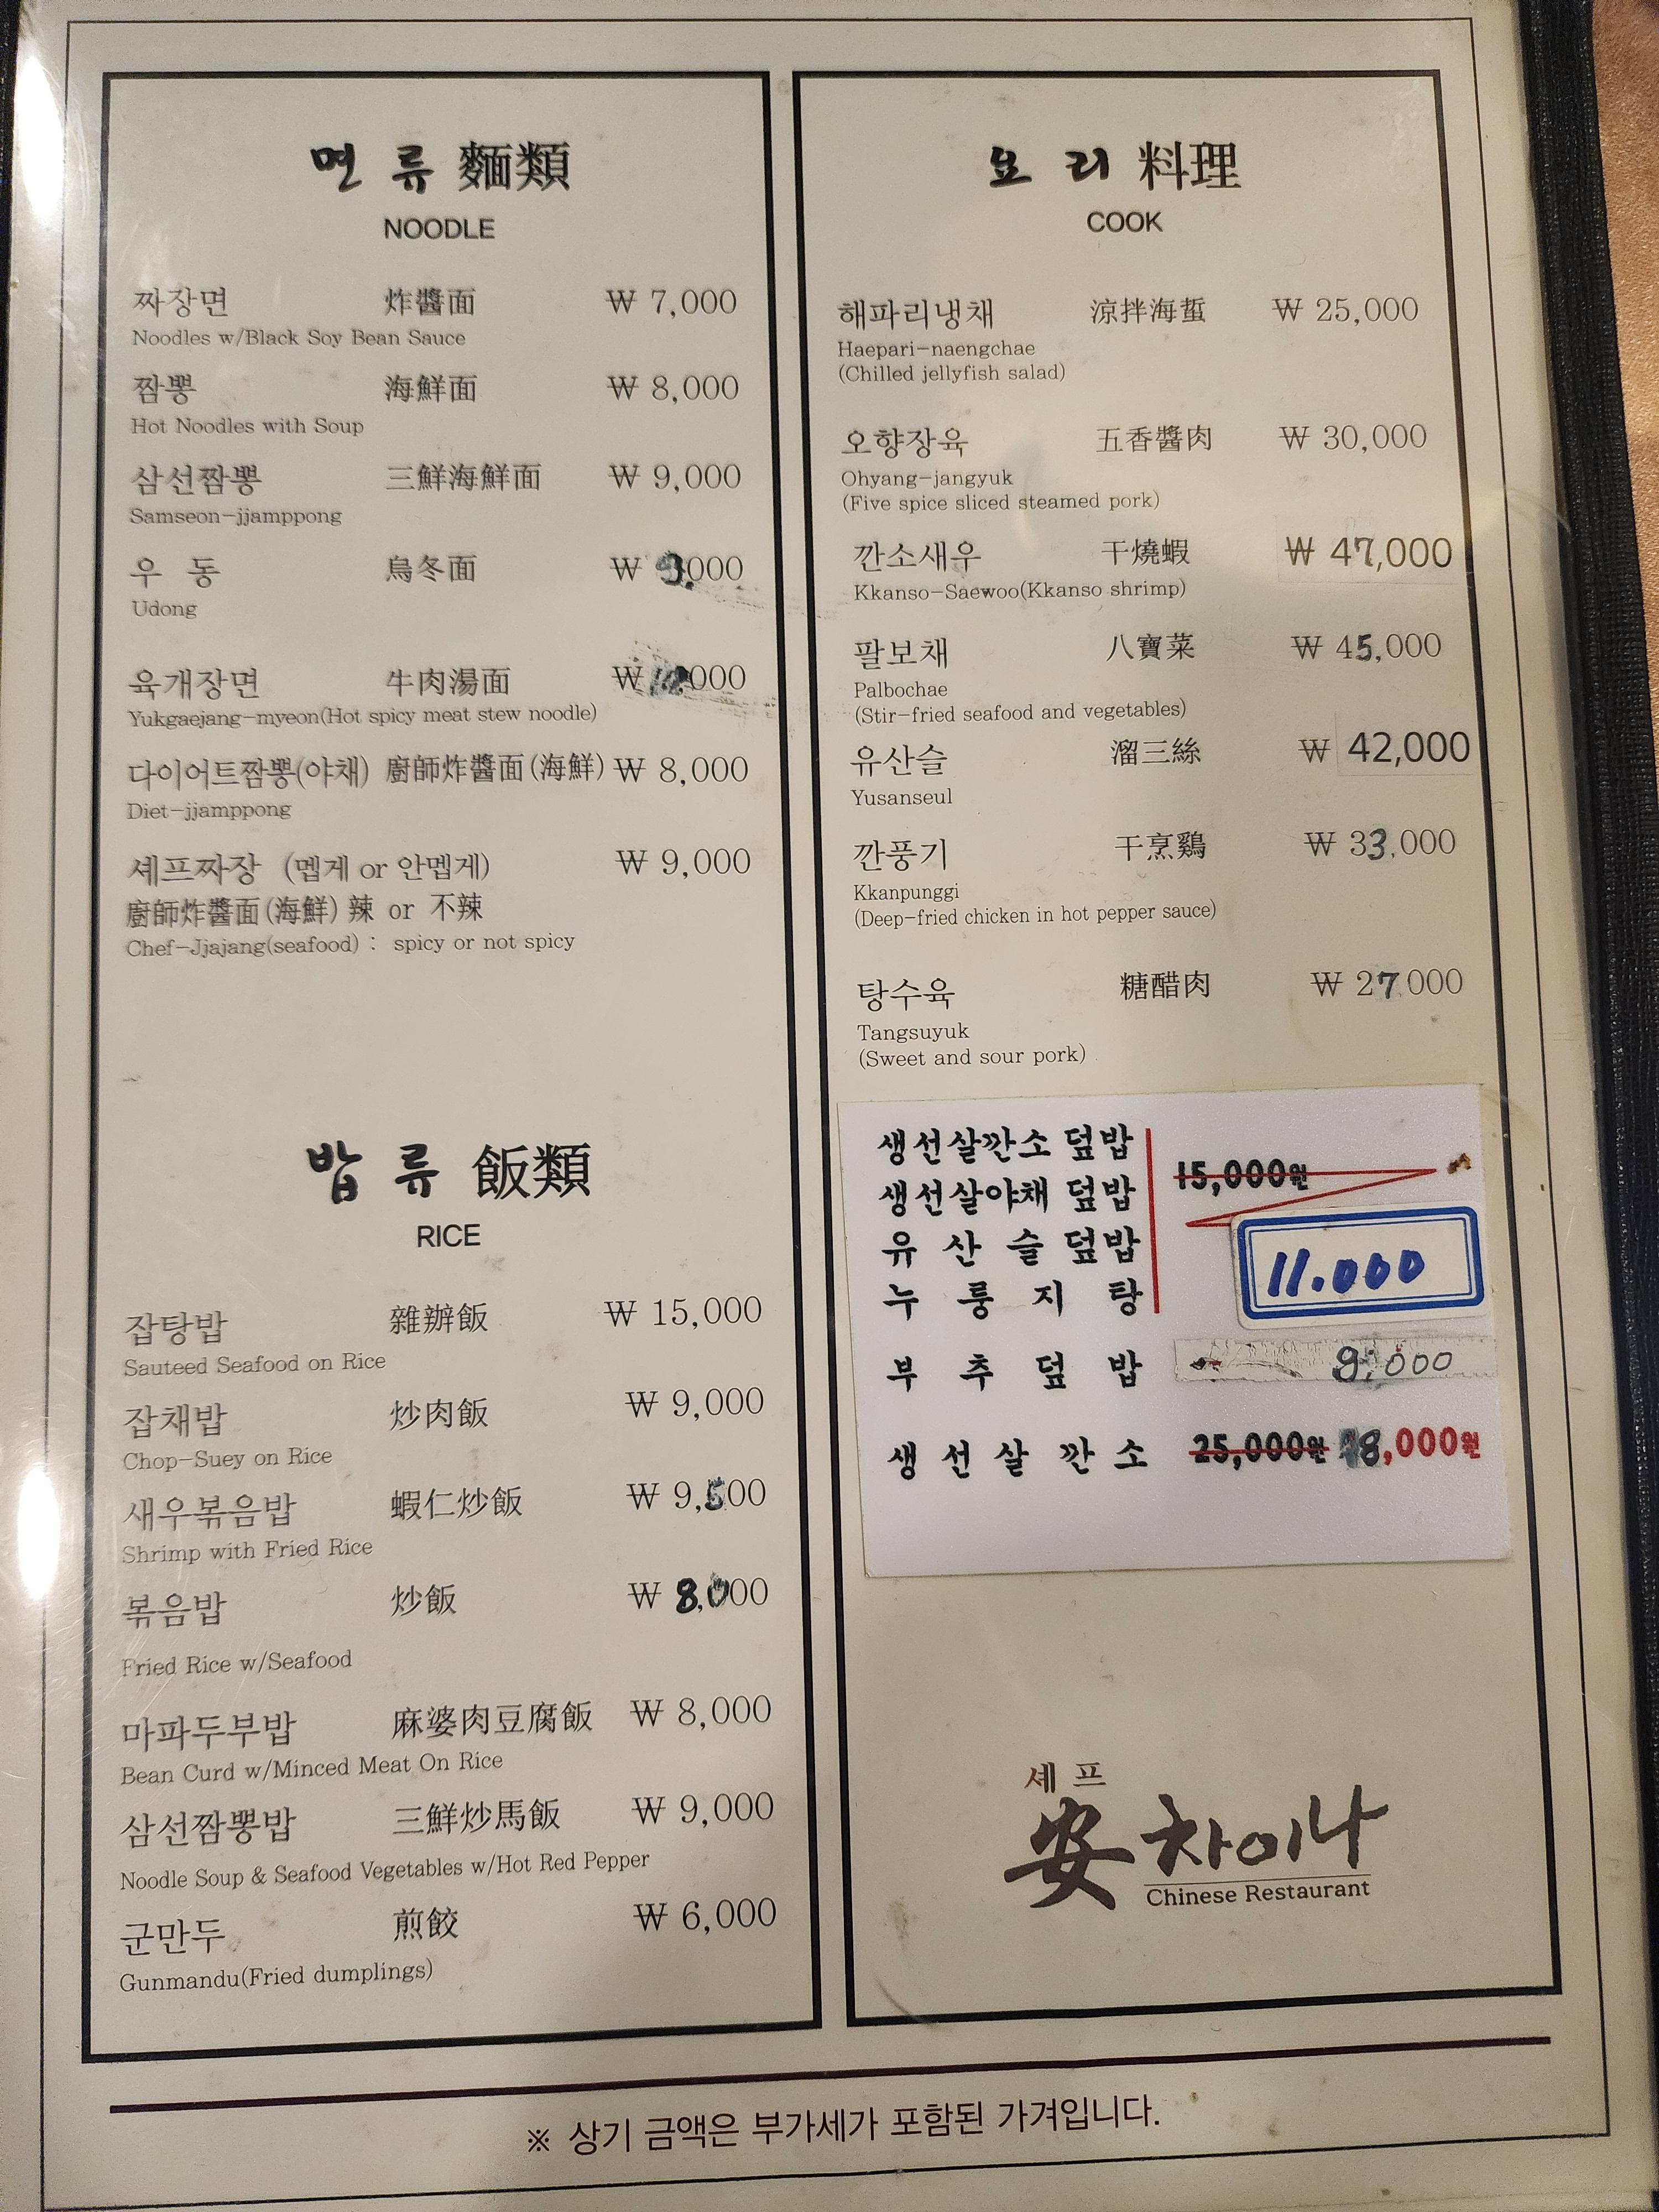 면 류 麵類
NOODLE
짜장면 炸醬面 ₩ 7,000
Noodles w/Black Soy Bean Sauce
짬뽕 海鮮面 ₩ 8,000
Hot Noodles with Soup
삼선짬뽕 三鮮海鮮面 ₩ 9,000
Samseon-jjamppong
우 동 烏冬面 ₩
Udong
육개장면 牛肉湯面 ₩
Yukgaejang-myeon(Hot spicy meat stew noodle)
다이어트짬뽕(야채) 廚師炸醬面(海鮮) ₩ 8,000
Diet-jjamppong
셰프짜장 (멥게 or 안멥게) ₩ 9,000
廚師炸醬面(海鮮) 辣 or 不辣
Chef-Jjajang(seafood) : spicy or not spicy
밥 류 飯類
RICE
잡탕밥 雜辦飯 ₩ 15,000
Sauteed Seafood on Rice
잡채밥 炒肉飯 ₩ 9,000
Chop-Suey on Rice
새우볶음밥 蝦仁炒飯 ₩ 9,500
Shrimp with Fried Rice
볶음밥 炒飯 ₩ 8,000
Fried Rice w/Seafood
마파두부밥 麻婆肉豆腐飯 ₩ 8,000
Bean Curd w/Minced Meat On Rice
삼선짬뽕밥 三鮮炒馬飯 ₩ 9,000
Noodle Soup & Seafood Vegetables w/Hot Red Pepper
군만두 煎餃 ₩ 6,000
Gunmandu(Fried dumplings)
요 리 料理
COOK
해파리냉채 涼拌海蜇 ₩ 25,000
Haepari-naengchae
(Chilled jellyfish salad)
오향장육 五香醬肉 ₩ 30,000
Ohyang-jangyuk
(Five spice sliced steamed pork)
깐소새우 干燒蝦 ₩ 47,000
Kkanso-Saewoo(Kkanso shrimp)
팔보채 八寶菜 ₩ 45,000
Palbochae
(Stir-fried seafood and vegetables)
유산슬 溜三絲 ₩ 42,000
Yusanseul
깐풍기 干烹鷄 ₩ 33,000
Kkanpunggi
(Deep-fried chicken in hot pepper sauce)
탕수육 糖醋肉 ₩ 27,000
Tangsuyuk
(Sweet and sour pork)
생선살깐소 덮밥
15,000원
생선살야채 덮밥
유 산 슬 덮밥
11.000
누 룽 지 탕
부 추 덮 밥 9,000
생 선 살 깐 소 25,000원 18,000원
셰 프
安 차이나
Chinese Restaurant
※ 상기 금액은 부가세가 포함된 가겨입니다.